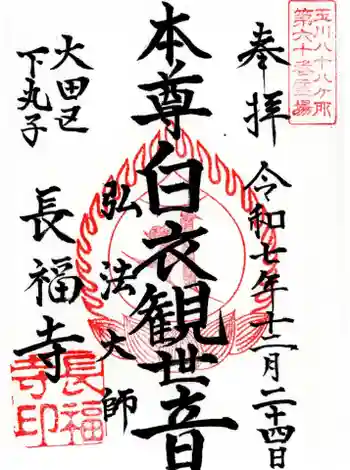 玉川八十八ヶ所
第六十壱霊場
奉拝
令和七年十二月二十四日
本尊白衣観世音
弘法大師
大田区
下丸子
長福寺
長福
寺印